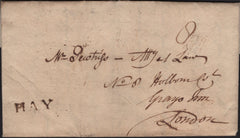 Mr Dewhirst - Atty at Law
No 8 Holborn Ct
Grays Inn
London
HAY